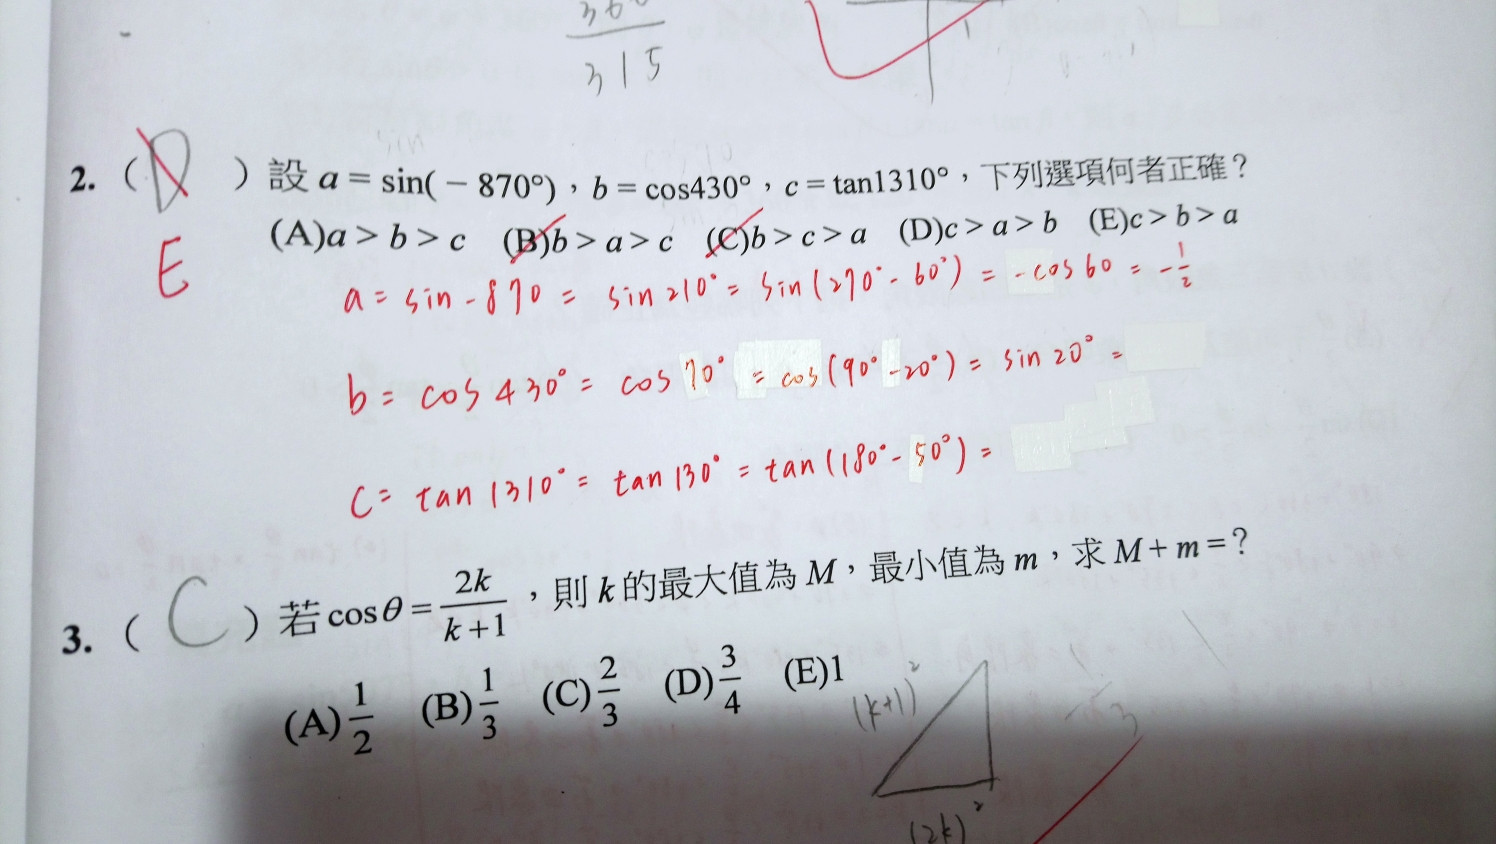 360
315
1
2. ( D ) 設 a = sin( − 870°)，b = cos430°，c = tan1310°，下列選項何者正確？
E
(A)a > b > c (B)b > a > c (C)b > c > a (D)c > a > b (E)c > b > a
a = sin - 870 = sin 210° = sin (270° - 60°) = - cos 60 = - 1/2
b = cos 430° = cos 70° = cos (90° - 20°) = sin 20° =
c = tan 1310° = tan 130° = tan (180° - 50°) =
3. ( C ) 若 cosθ = 2k/k+1，則 k 的最大值為 M，最小值為 m，求 M + m = ?
(A) 1/2 (B) 1/3 (C) 2/3 (D) 3/4 (E)1
(k+1)²
(2k)²